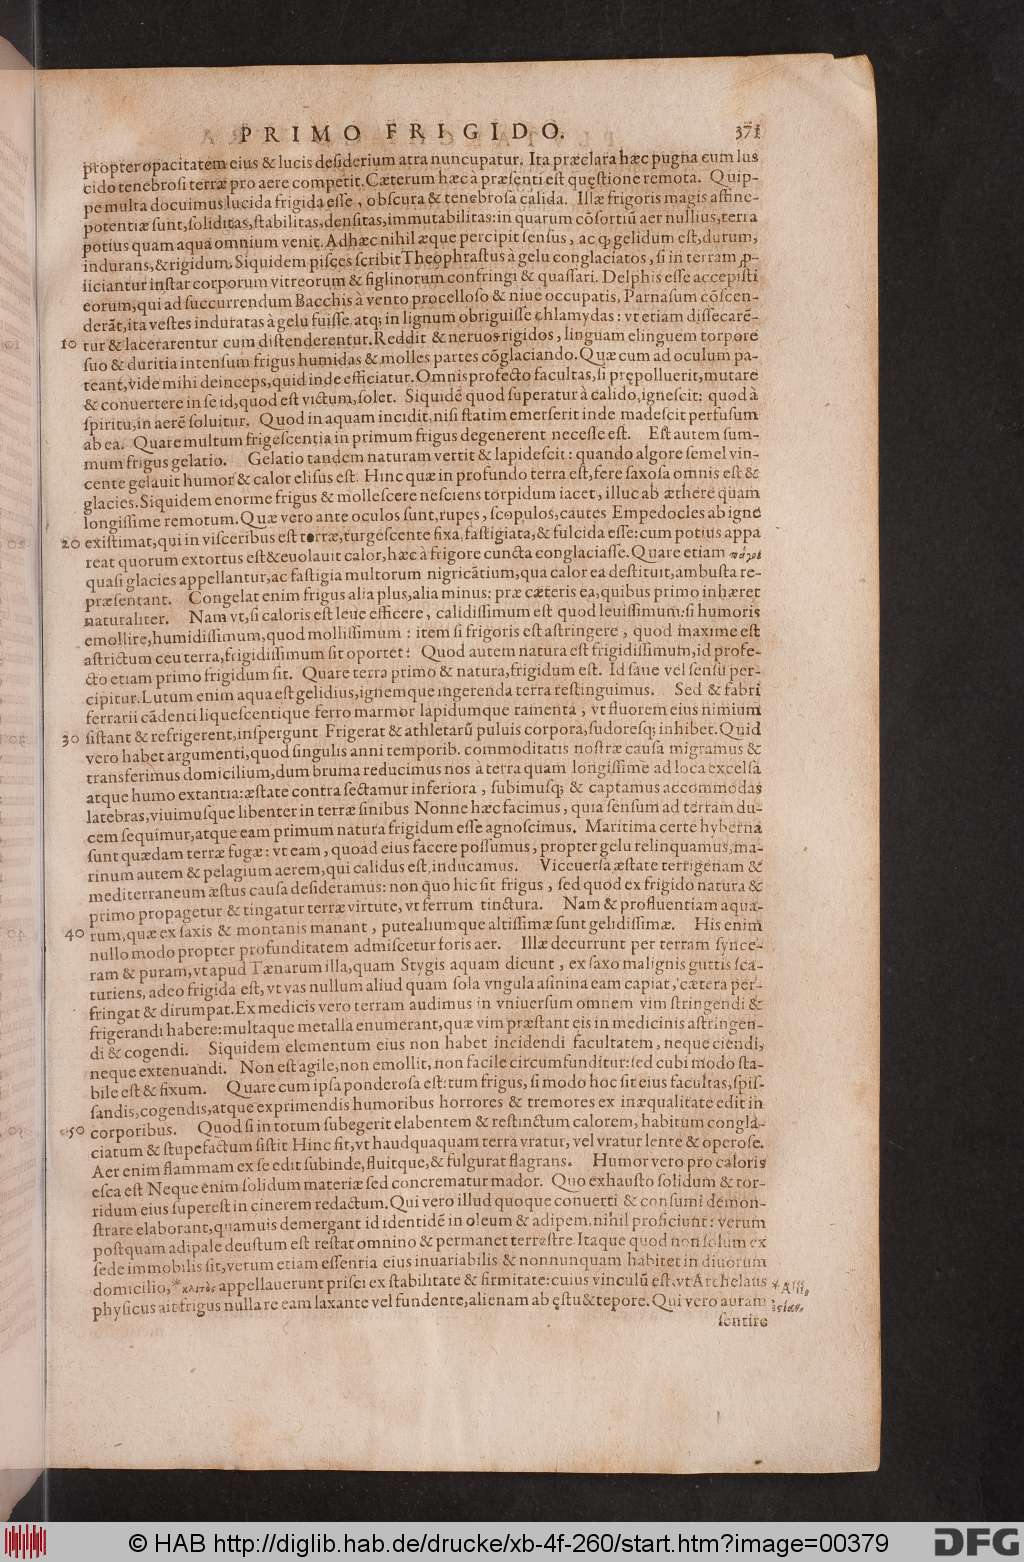 PRIMO FRIGIDO. 371
propter opacitatem eius & lucis desiderium atra nuncupatur. Ita præclara hæc pugna cum lus
cido tenebrosi terræ pro aere competit. Cæterum hæc à præsenti est quęstione remota. Quip-
pe multa docuimus lucida frigida esse, obscura & tenebrosa calida. Illæ frigoris magis affine
potentiæ sunt, soliditas, stabilitas, densitas, immutabilitas: in quarum cõsortiũ aer nullius, terra
potius quam aqua omnium venit. Adhæc nihil æque percipit sensus, ac q; gelidum est, durum,
indurans, & rigidum. Siquidem pisces scribit Theophrastus à gelu conglaciatos, si in terram p-
iiciantur instar corporum vitreorum & figlinorum confringi & quassari. Delphis esse accepisti
eorum, qui ad succurrendum Bacchis à vento procelloso & niue occupatis, Parnasum cõscen-
derãt, ita vestes induratas à gelu fuisse atq; in lignum obriguisse chlamydas: vt etiam dissecarẽ-
10 tur & lacerarentur cum distenderentur. Reddit & neruos rigidos, linguam elinguem torpore
suo & duritia intensum frigus humidas & molles partes cõglaciando. Quæ cum ad oculum pa-
teant, vide mihi deinceps, quid inde efficiatur. Omnis profecto facultas, si prępolluerit, mutare
& conuertere in se id, quod est victum, solet. Siquidẽ quod superatur à calido, ignescit: quod à
spiritu, in aerẽ soluitur. Quod in aquam incidit, nisi statim emerserit inde madescit perfusum
ab ea. Quare multum frigescentia in primum frigus degenerent necesse est. Est autem sum-
mum frigus gelatio. Gelatio tandem naturam vertit & lapidescit: quando algore semel vin-
cente gelauit humor & calor elisus est. Hinc quæ in profundo terra est, fere saxosa omnis est &
glacies. Siquidem enorme frigus & mollescere nesciens torpidum iacet, illuc ab æthere quam
longissime remotum. Quæ vero ante oculos sunt, rupes, scopulos, cautes Empedocles ab igne
20 existimat, qui in visceribus est terræ, turgescente fixa, fastigiata, & fulcida esse: cum potius appa
reat quorum extortus est & euolauit calor, hæc à frigore cuncta conglaciasse. Quare etiam πάγοι
quasi glacies appellantur, ac fastigia multorum nigricãtium, qua calor ea destituit, ambusta re-
præsentant. Congelat enim frigus alia plus, alia minus: præ cæteris ea, quibus primo inhæret
naturaliter. Nam vt, si caloris est leue efficere, calidissimum est quod leuissimum: si humoris
emollire, humidissimum, quod mollissimum: item si frigoris est astringere, quod maxime est
astrictum ceu terra, frigidissimum sit oportet: Quod autem natura est frigidissimum, id profe-
cto etiam primo frigidum sit. Quare terra primo & natura, frigidum est. Id sane vel sensu per-
cipitur. Lutum enim aqua est gelidius, ignemque ingerenda terra restinguimus. Sed & fabri
ferrarii cãdenti liquescentique ferro marmor lapidumque ramenta, vt fluorem eius nimium
30 sistant & refrigerent, inspergunt Frigerat & athletarũ puluis corpora, sudoresq; inhibet. Quid
vero habet argumenti, quod singulis anni temporib. commoditatis nostræ causa migramus &
transferimus domicilium, dum bruma reducimus nos à terra quam longissime ad loca excelsa
atque humo extantia: æstate contra sectamur inferiora, subimusq; & captamus accommodas
latebras, viuimusque libenter in terræ sinibus Nonne hæc facimus, quia sensum ad terram du-
cem sequimur, atque eam primum natura frigidum esse agnoscimus. Maritima certe hyberna
sunt quædam terræ fugæ: vt eam, quoad eius facere possumus, propter gelu relinquamus, ma-
rinum autem & pelagium aerem, qui calidus est, inducamus. Viceuersa æstate terrigenam &
mediterraneum æstus causa desideramus: non quo hic sit frigus, sed quod ex frigido natura &
primo propagetur & tingatur terræ virtute, vt ferrum tinctura. Nam & profluentiam aqua-
40 rum, quæ ex saxis & montanis manant, putealiumque altissimæ sunt gelidissimæ. His enim
nullo modo propter profunditatem admiscetur foris aer. Illæ decurrunt per terram synce-
ram & puram, vt apud Tænarum illa, quam Stygis aquam dicunt, ex saxo malignis guttis sca-
turiens, adeo frigida est, vt vas nullum aliud quam sola vngula asinina eam capiat, cætera per-
fringat & dirumpat. Ex medicis vero terram audimus in vniuersum omnem vim stringendi &
frigerandi habere: multaque metalla enumerant, quæ vim præstant eis in medicinis astringen-
di & cogendi. Siquidem elementum eius non habet incidendi facultatem, neque ciendi,
neque extenuandi. Non est agile, non emollit, non facile circumfunditur: sed cubi modo sta-
bile est & fixum. Quare cum ipsa ponderosa est: tum frigus, si modo hoc sit eius facultas, spis-
sandis, cogendis, atque exprimendis humoribus horrores & tremores ex inæqualitate edit in
50 corporibus. Quod si in totum subegerit elabentem & restinctum calorem, habitum congla-
ciatum & stupefactum sistit Hinc fit, vt haudquaquam terra vratur, vel vratur lente & operose.
Aer enim flammam ex se edit subinde, fluitque, & fulgurat flagrans. Humor vero pro caloris
esca est Neque enim solidum materiæ sed concrematur mador. Quo exhausto solidum & tor-
ridum eius superest in cinerem redactum. Qui vero illud quoque conuerti & consumi demon-
strare elaborant, quamuis demergant id identidẽ in oleum & adipem, nihil proficiunt: verum
postquam adipale deustum est restat omnino & permanet terrestre. Itaque quod non solum ex
sede immobilis sit, verum etiam essentia eius inuariabilis & nonnunquam habitet in diuorum
domicilio, * κλιτὸς appellauerunt prisci ex stabilitate & firmitate: cuius vinculũ est, vt Archelaus
physicus ait frigus nulla re eam laxante vel fundente, alienam ab ęstu & tepore. Qui vero auram
sentire